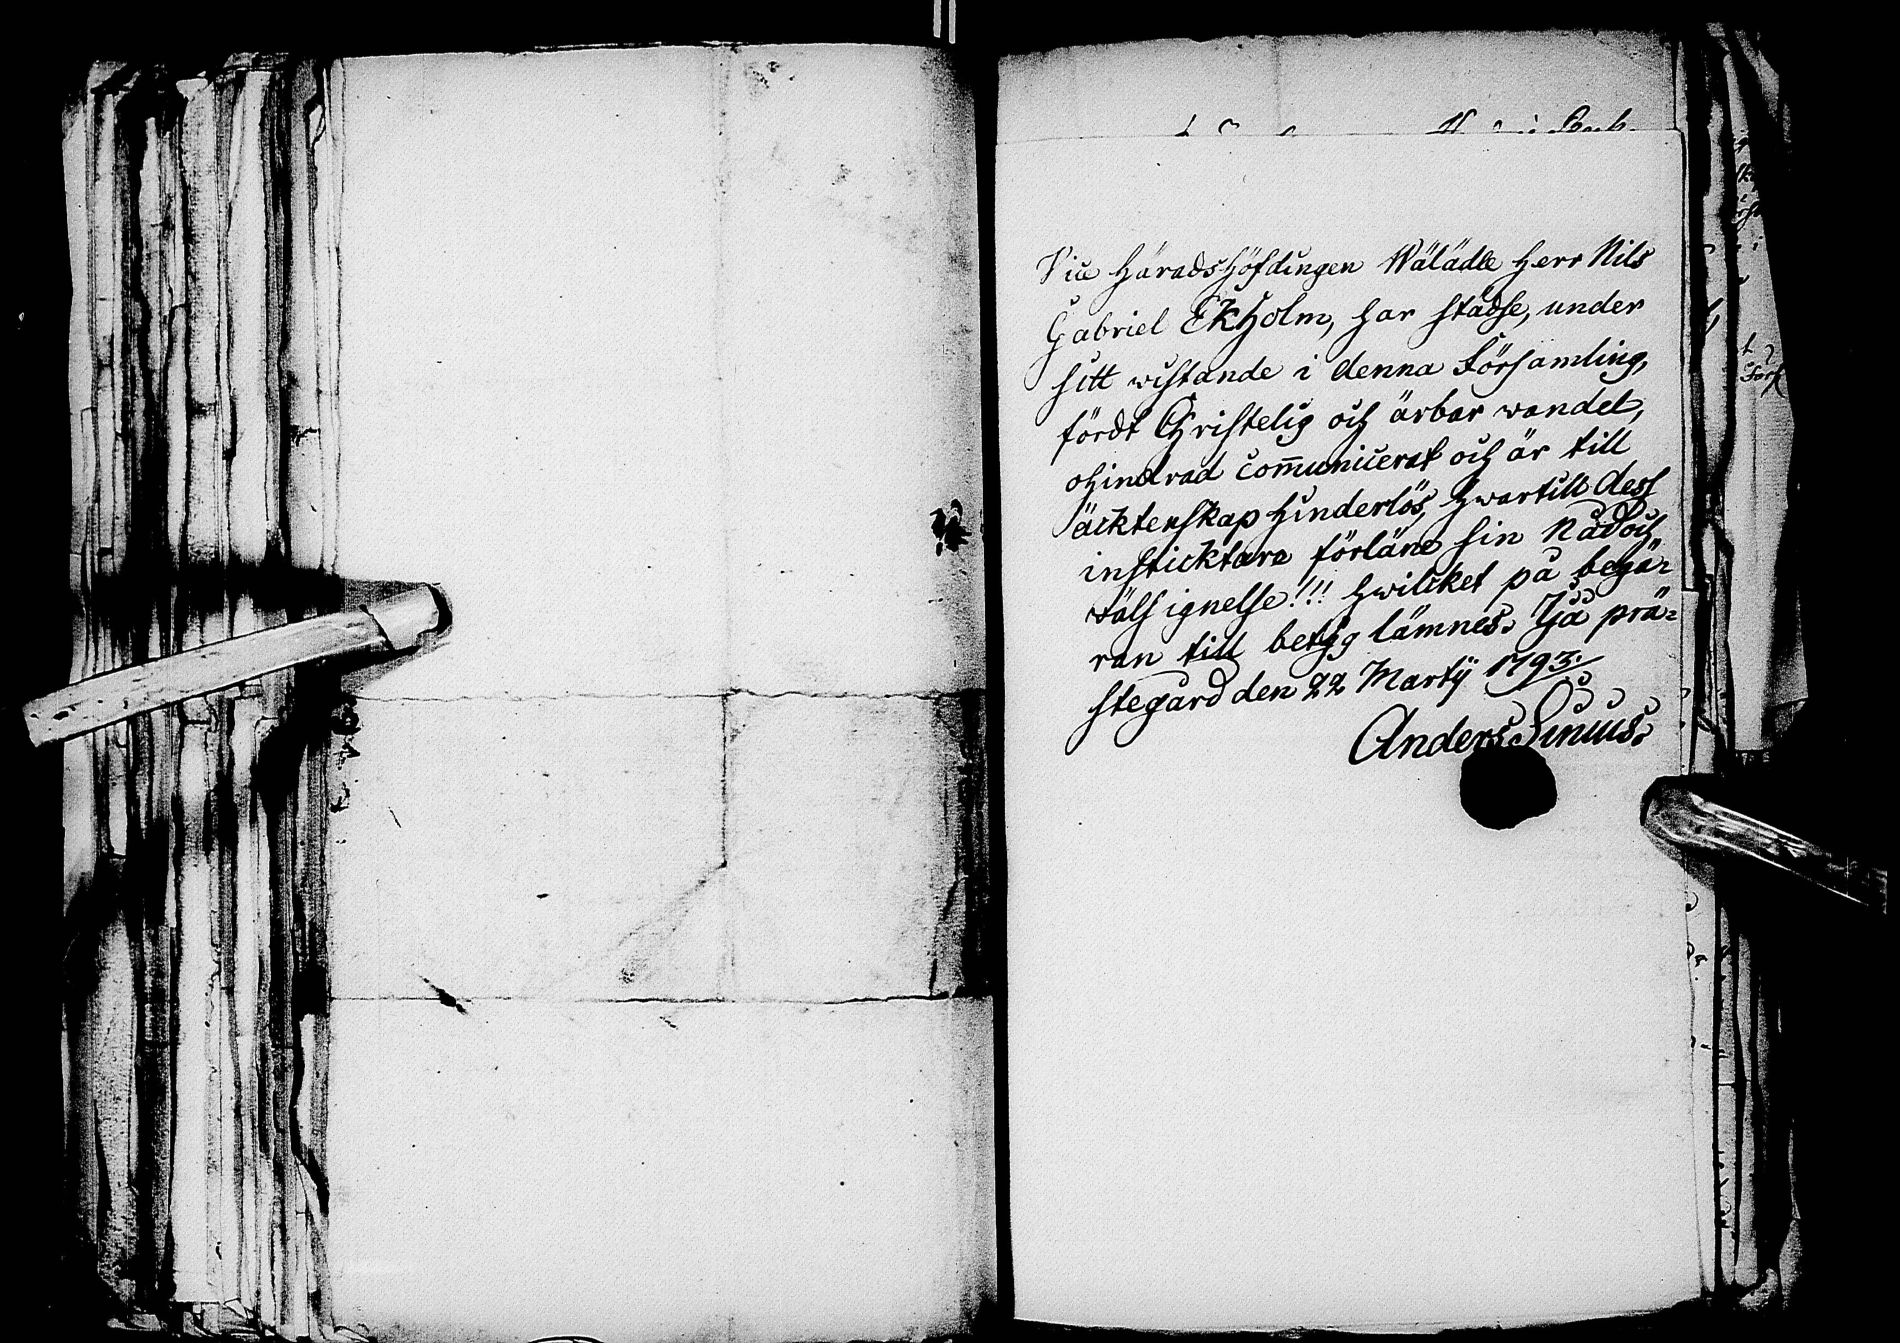 Vice HäradsHöfdingen Wälädle Herr Nils
Gabriel EkHolm, har städse, under
sitt wistande i denna Församling,
fördt Christelig och ärbar wandel,
oHindrad com̅unicerat och är till
äcktenskap Hinderlös, Hwartill dess
insticktare förläne sin Nåd och
wälsignelse!!! Hwilcket på begä-
ran till betyg lämnes. Tjä prä-
stegård den 22 Martij 1793.
Anders